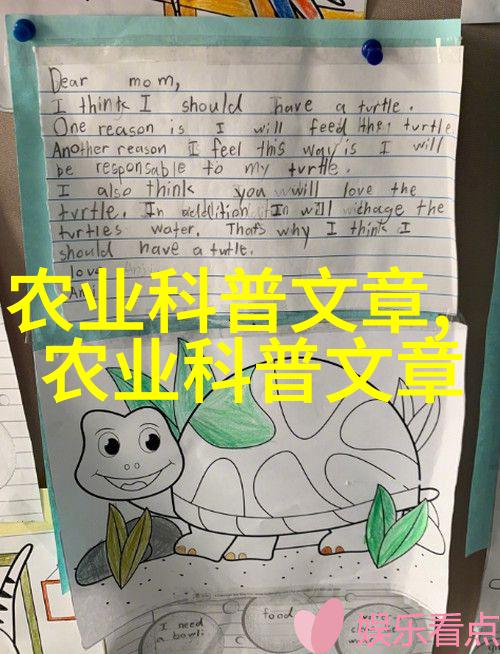 Dear mom,
I think I should have a turtle.
One reason is I will feed the turtle.
Another reason I feel this way is I will
be responsable to my turtle.
I also think you will love the
turtle. In addition I will chage the
turtles water. That's why I think I
should have a turtle.
love
农业科普文章,
农业科普文章
I need
a bowl
food
娱乐看点